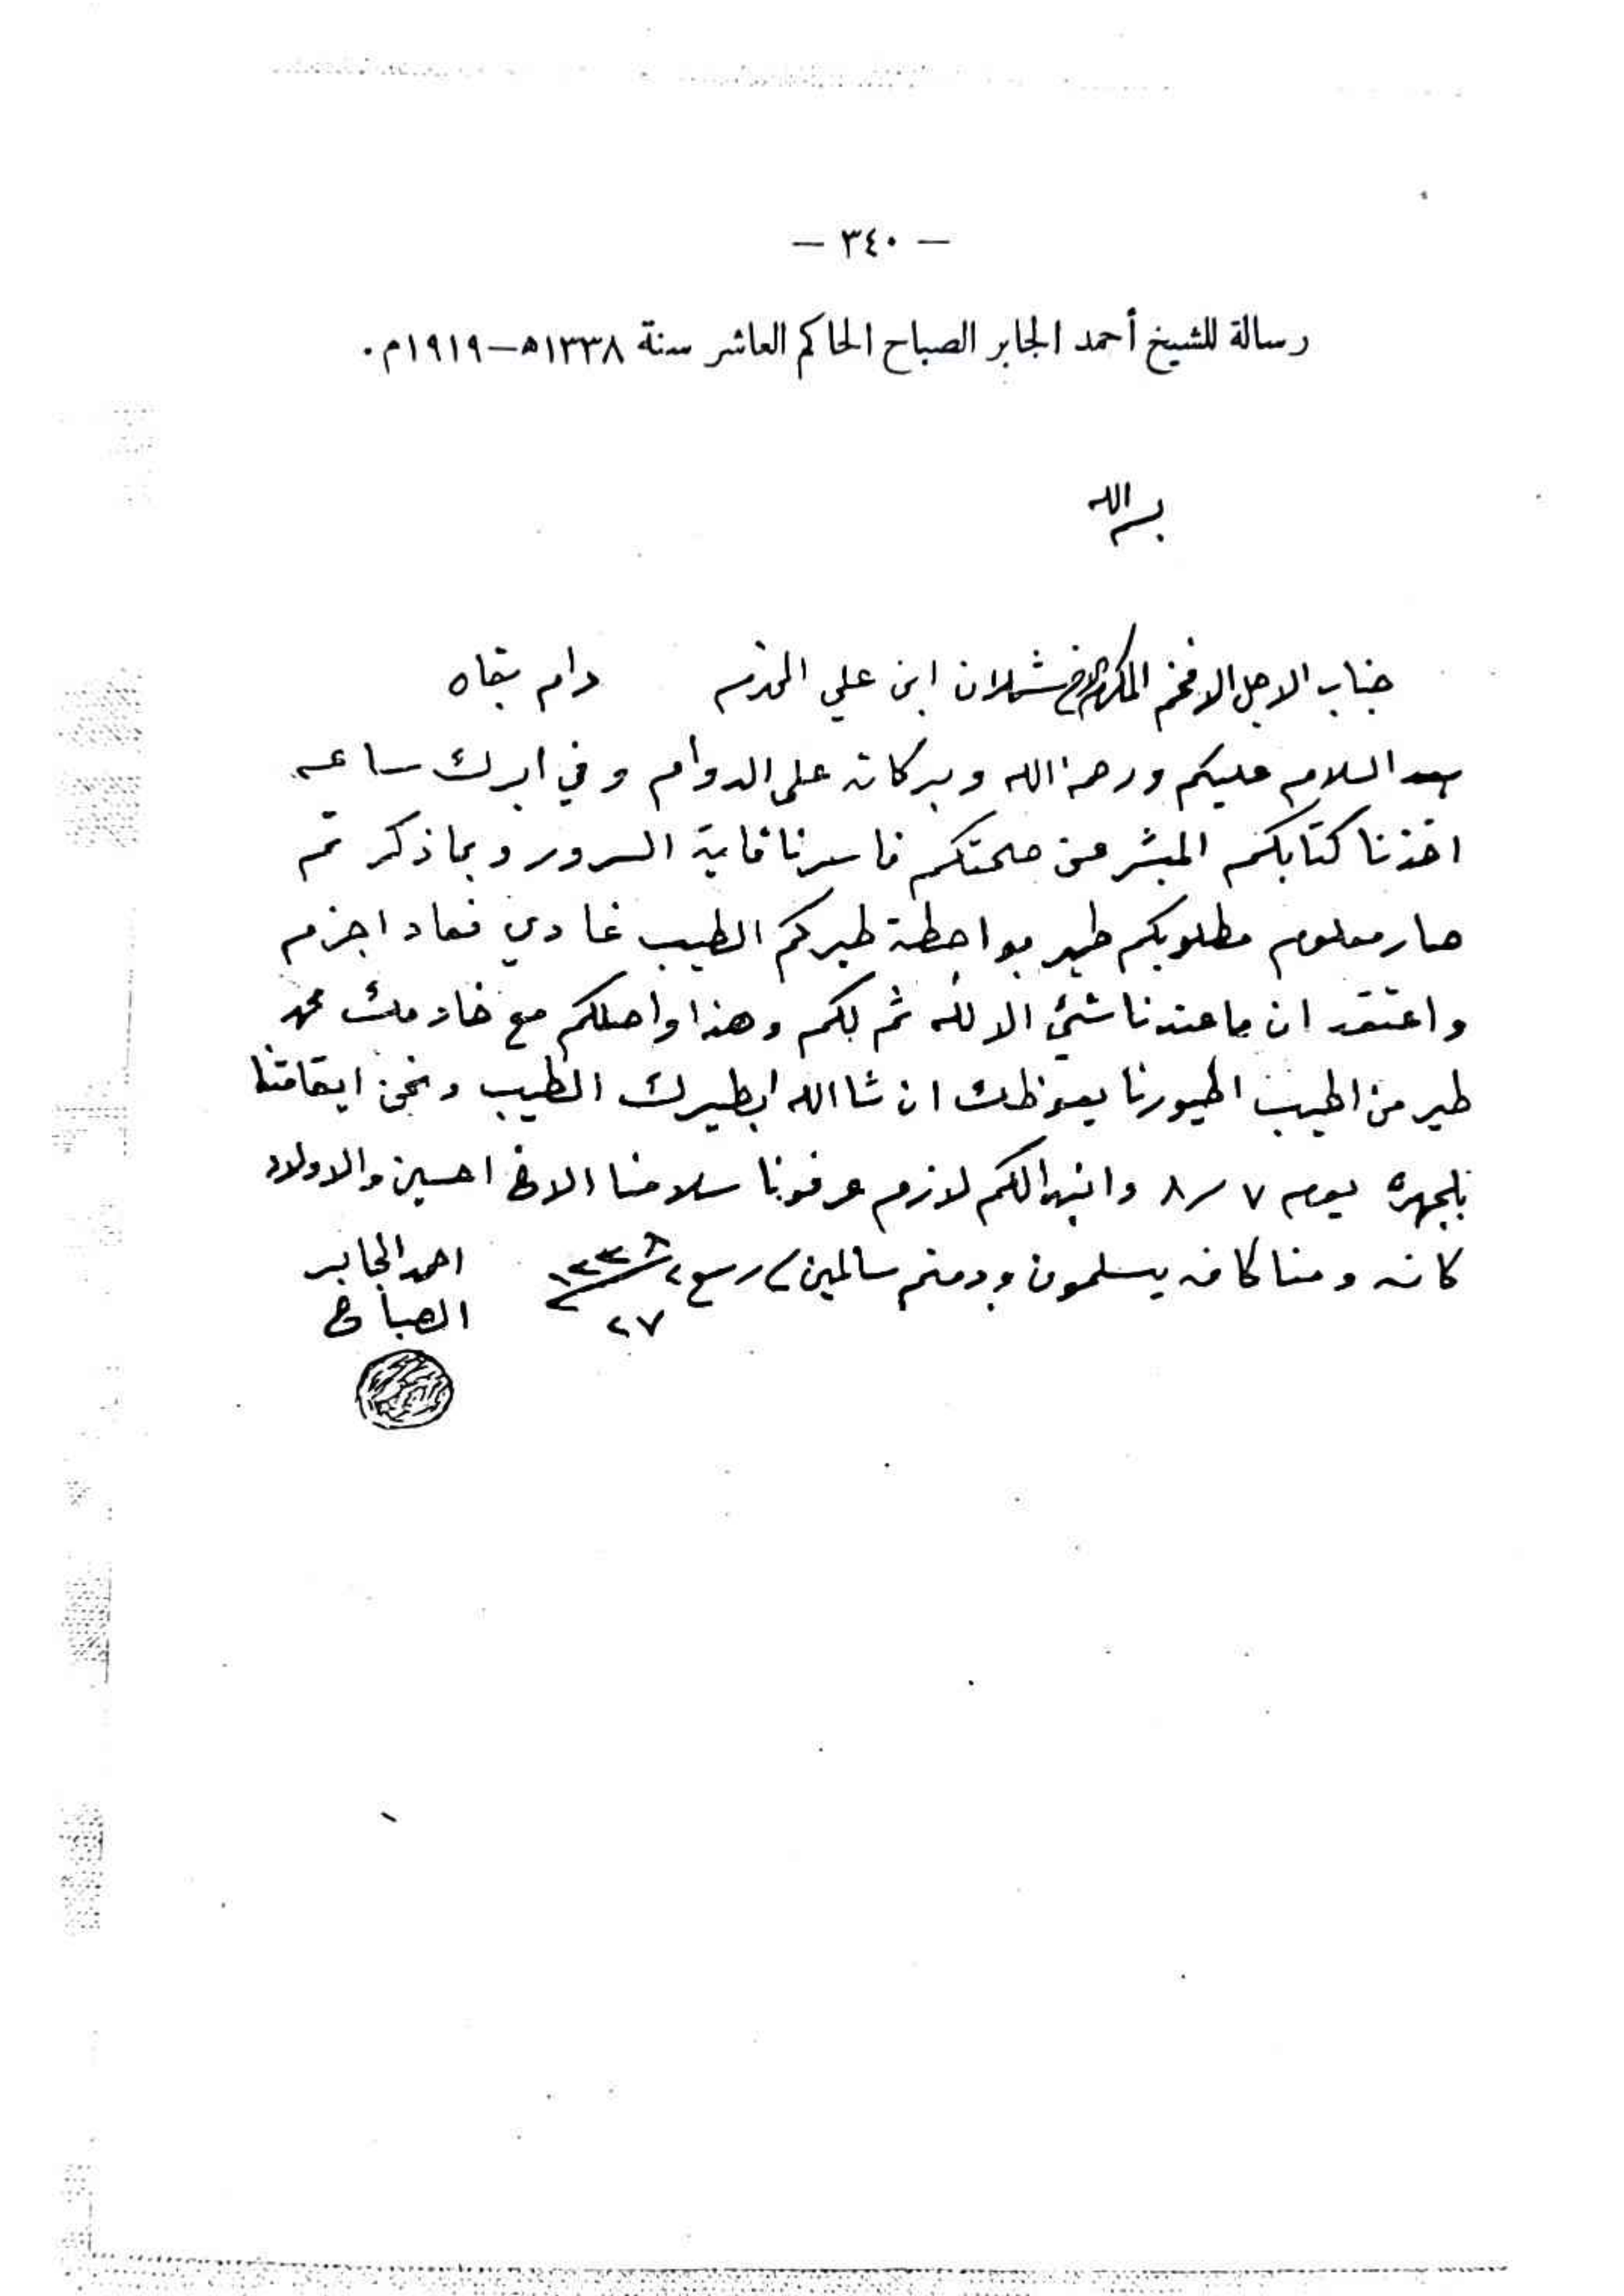 — ٣٤٠ —
رسالة للشيخ أحمد الجابر الصباح الحاكم العاشر سنة ١٣٣٨ه‍—١٩١٩م.
بسم الله
جناب الاجل الافخم المكرم الاخ شملان ابن علي المحترم دام بقاه
بعد السلام عليكم ورحمة الله وبركاته على الدوام وفي ابرك ساعه
اخذنا كتابكم المبشر عن صحتكم فاسرنا غاية السرور وبما ذكر تم
صار معلوم مطلوبكم طير طيركم الطيب غادي فعاد اجزم
واعتقد ان ما عندنا شئ الا لله ثم لكم وهذا واصلكم مع خادمك محمد
طير من اطيب اطيورنا ان شا الله ابطيرك الطيب ونحن ايقامتنا
بلجهره يوم ٧ / ٨ لازم عرفونا سلامنا الاخ احسين والاولاد
كافه ومنا كافه يسلمون ودمتم سالمين ربيع ٢ ١٣٣٨
٢٧
احمد الجابر
الصباح